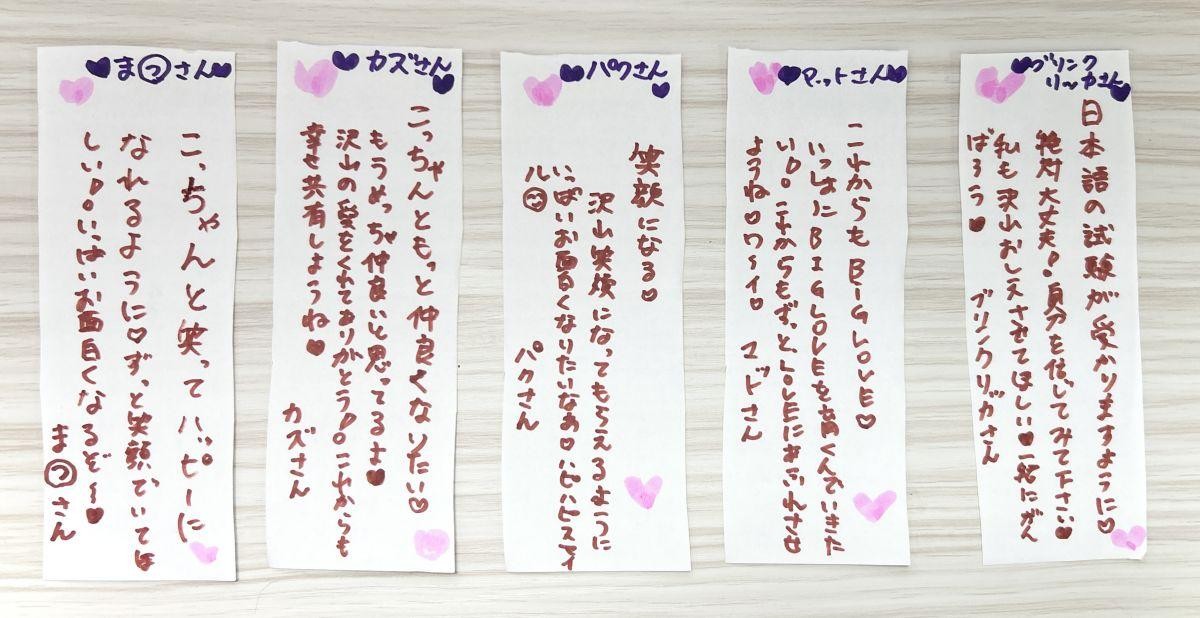 ♥ま㋡さん♥
こっちゃんと笑ってハッピーに
なれるように♡ずっと笑顔でいてほ
しい!!いっぱいお面白くなるぞ〜♥
ま㋡さん
♥カズさん♥
こっちゃんともっと仲良くなりたい♡
もうめっちゃ仲良いと思ってるよ♥
沢山の愛をくれてありがとう!!これからも
幸せ共有しようね♥
カズさん
♥パクさん♥
笑顔になる♡
沢山笑顔になってもらえるように
いっぱいお面白くなりたいなあ♡ハピハピスマイ
ル☺
パクさん
♥マットさん♥
これからもBIG LOVE♡
いっしょにBIG LOVEを育くんでいきた
い!!これからもずっとLOVEにあふれさせ
ようね♡ワーイ♡
マドさん
♥ブリンク
リーカさん♥
日本語の試験が受かりますように♡
絶対大丈夫!!自分を信じてみて下さい♡
私も沢山おしえさせてほしい♥一緒にがん
ばろう♥
ブリンクリカさん